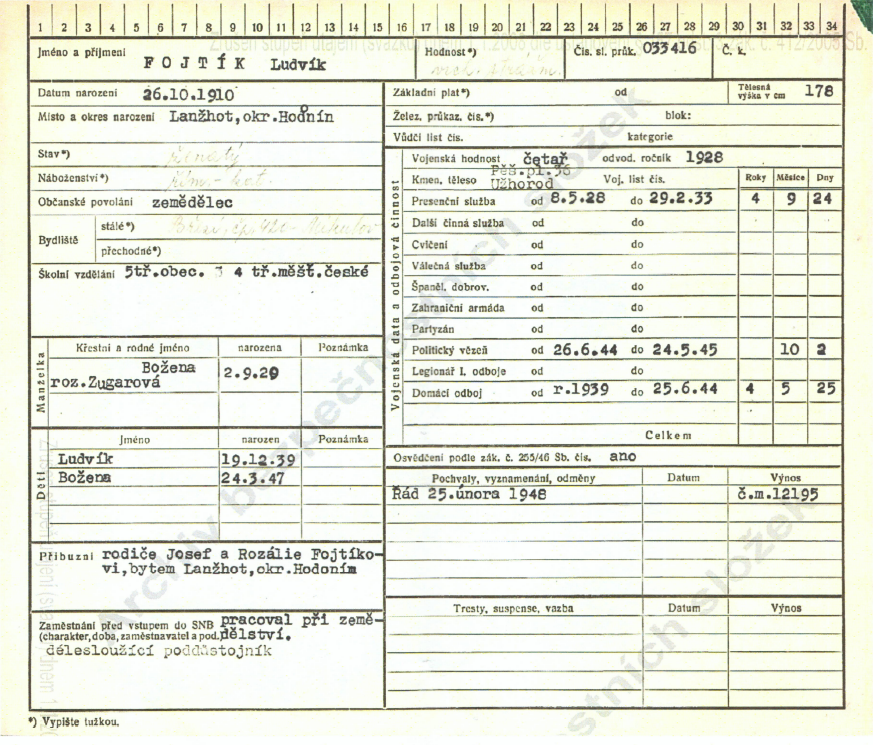 1 2 3 4 5 6 7 8 9 10 11 12 13 14 15 16 17 18 19 20 21 22 23 24 25 26 27 28 29 30 31 32 33 34
Jméno a příjmení FOJTÍK Ludvík
Hodnost*) vrch. strážm.
Čís. sl. průk. 033416
Č. k.
Datum narození 26.10.1910
Místo a okres narození Lanžhot,okr.Hodnín
Stav*) ženatý
Náboženství*) řím.-kat.
Občanské povolání zemědělec
Bydliště
stálé*) Březí, čp. 420 - Mikulov
přechodné*)
Školní vzdělání 5tř.obec. 4 tř.měšť.české
Manželka
Křestní a rodné jméno narozena Poznámka
Božena
roz.Zugarová 2.9.20
Děti
Jméno narozen Poznámka
Ludvík 19.12.39
Božena 24.3.47
Příbuzní rodiče Josef a Rozálie Fojtíko-
vi,bytem Lanžhot,okr.Hodonín
Zaměstnání před vstupem do SNB pracoval při země-
(charakter, doba, zaměstnavatel a pod.) dělství.
délesloužící poddůstojník
*) Vypište tužkou.
Základní plat*) od
Tělesná výška v cm 178
Želez. průkaz. čís.*) blok:
Vůdčí list čís. kategorie
Vojenská data a odbojová činnost
Vojenská hodnost četař odvod. ročník 1928
Kmen. těleso Pěš.pl.36
Užhorod Voj. list čís.
Roky Měsíce Dny
Presenční služba od 8.5.28 do 29.2.33 4 9 24
Další činná služba od do
Cvičení od do
Válečná služba od do
Španěl. dobrov. od do
Zahraniční armáda od do
Partyzán od do
Politický vězeň od 26.6.44 do 24.5.45 10 2
Legionář I. odboje od do
Domácí odboj od r.1939 do 25.6.44 4 5 25
Celkem
Osvědčení podle zák. č. 255/46 Sb. čís. ano
Pochvaly, vyznamenání, odměny Datum Výnos
Řád 25.února 1948 č.m.12195
Tresty, suspense, vazba Datum Výnos
Archiv bezpečnostních složek